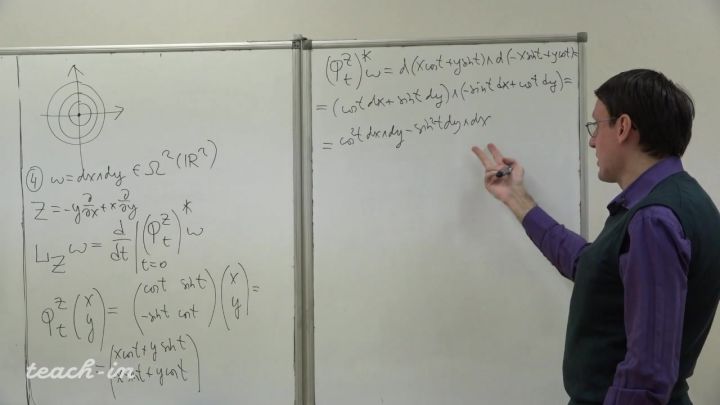 ④ ω = dx∧dy ∈ Ω²(ℝ²)
Z = -y ∂/∂x + x ∂/∂y
L_Z ω = d/dt |_{t=0} (φ_t^Z)^* ω
φ_t^Z (x y) = (cos t sin t -sin t cos t) (x y) =
= (x cos t + y sin t -x sin t + y cos t)
(φ_t^Z)^* ω = d(x cos t + y sin t) ∧ d(-x sin t + y cos t) =
= (cos t dx + sin t dy) ∧ (-sin t dx + cos t dy) =
= cos² t dx∧dy - sin² t dy∧dx
teach-in